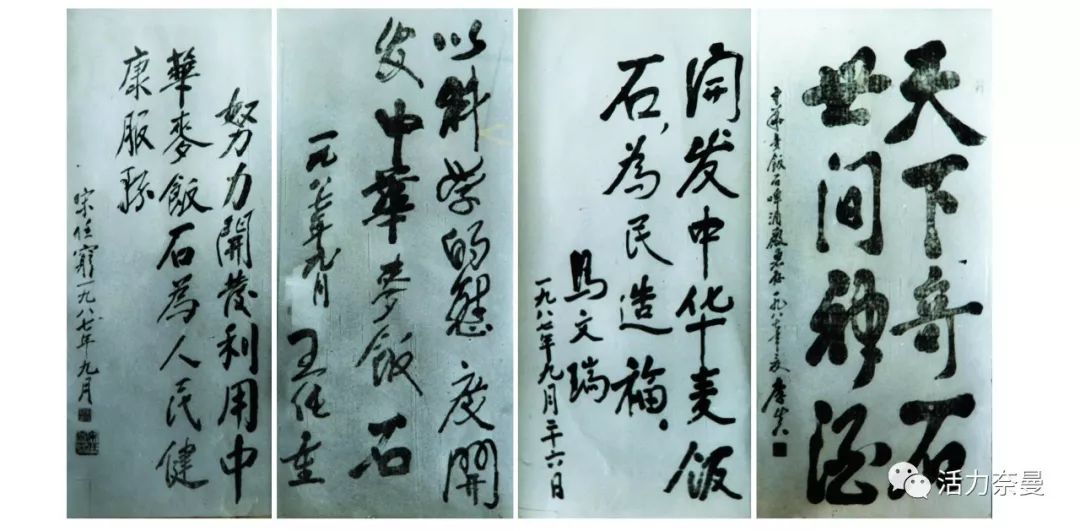 努力開發利用中
華麥飯石為人民健
康服務
宋任窮一九八七年九月
以科学的態度開
发中華麦飯石
一九八七年九月
王任重
開发中华麦饭
石,為民造福。
馬文瑞
一九八七年九月二十六日
天下奇石
世间神酒
中華麦飯石啤酒廠惠存 一九八七年
活力奈曼